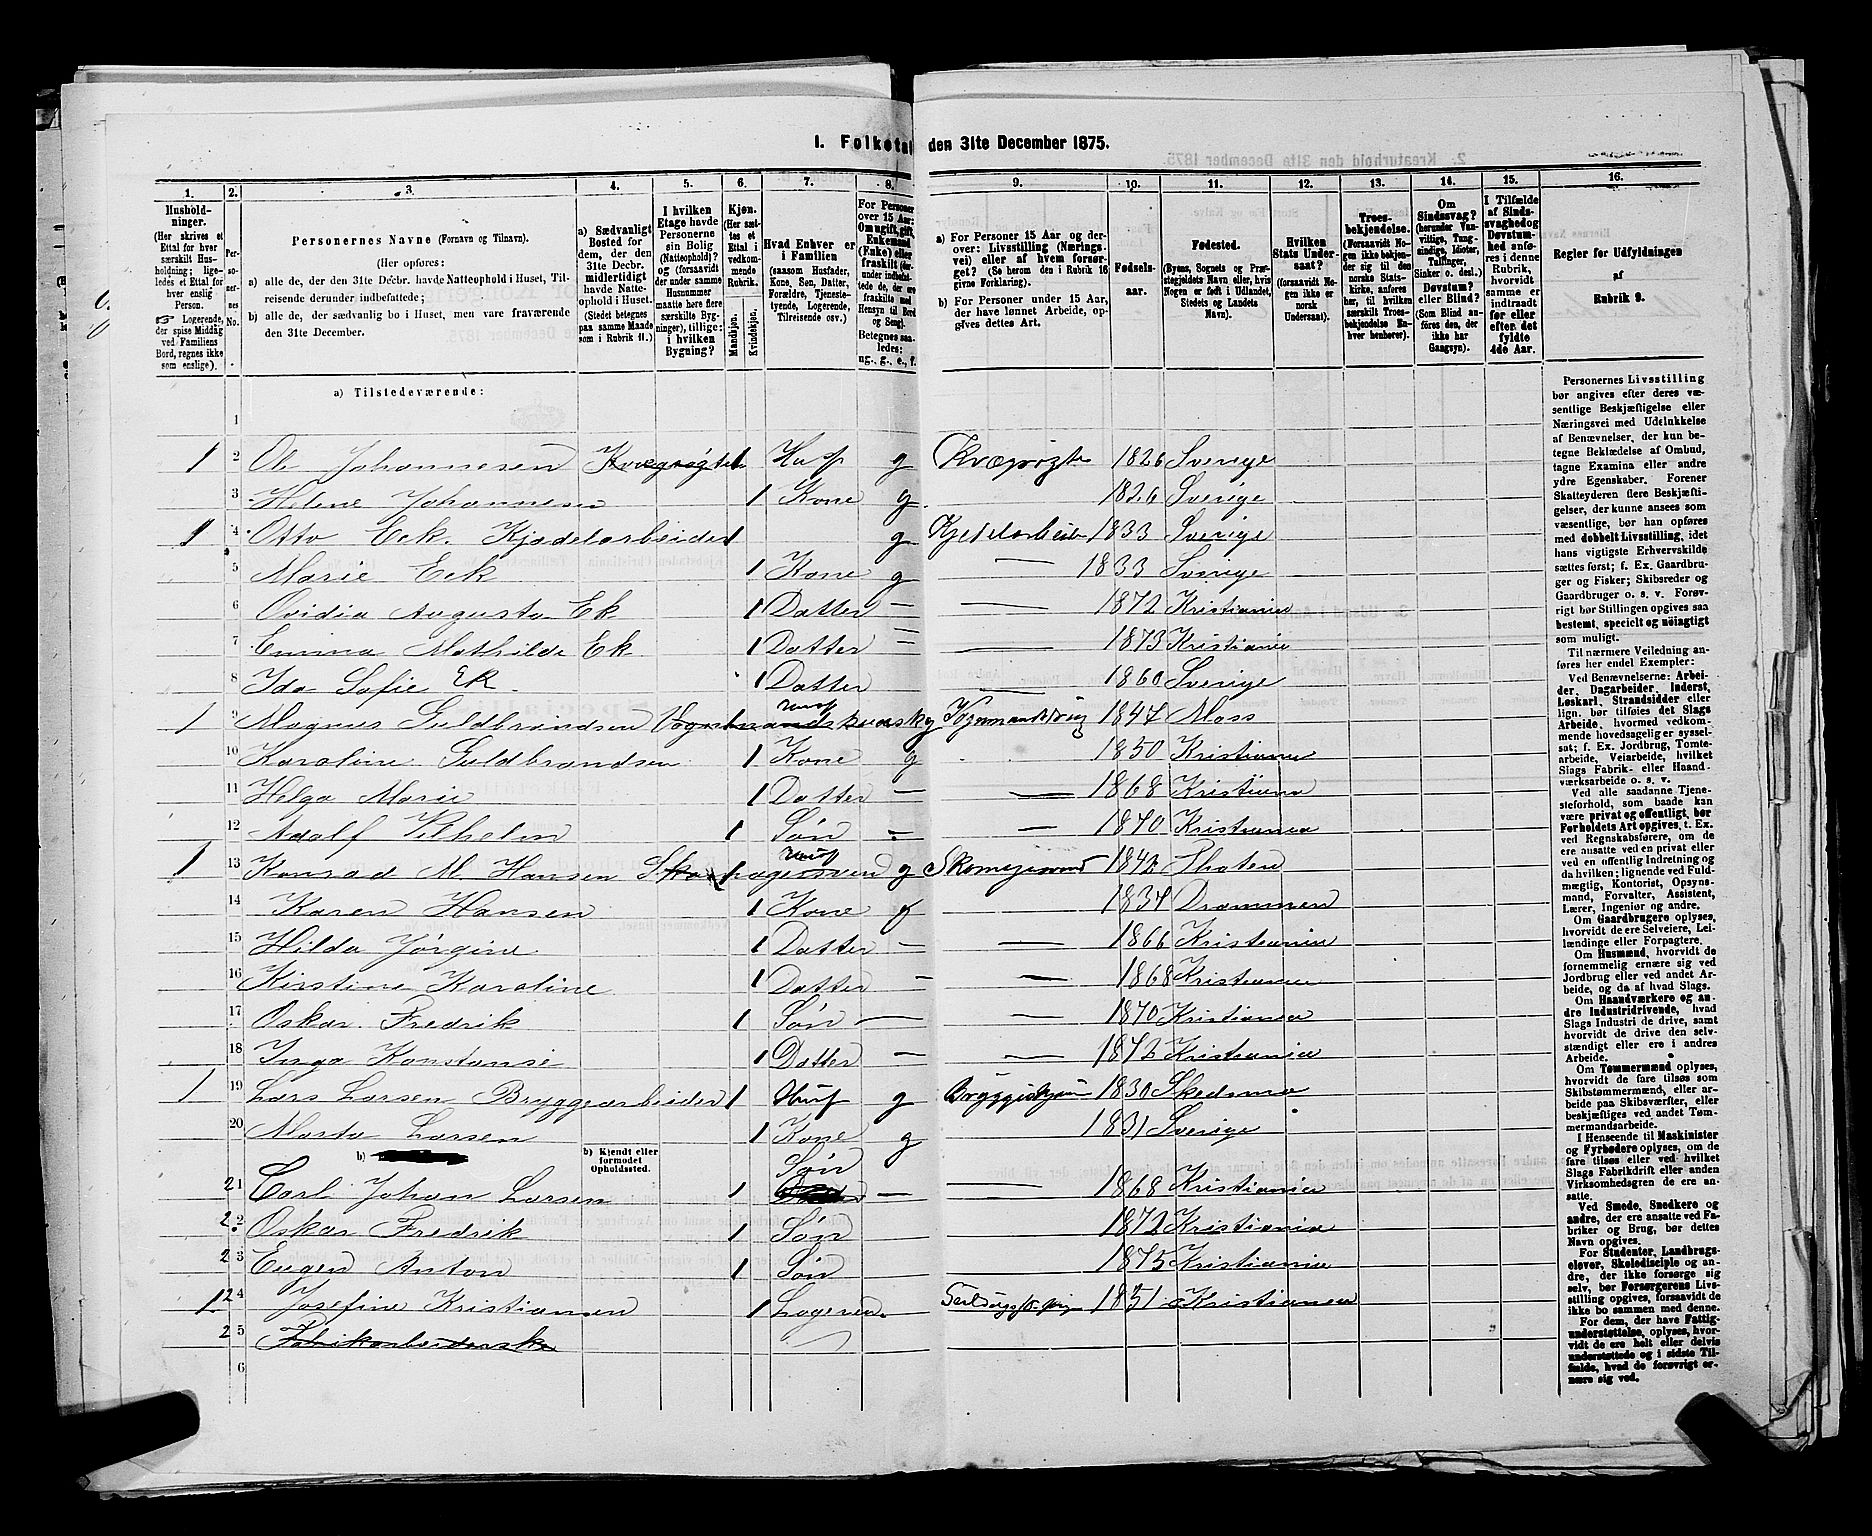 I. Folketal den 31te December 1875.
1. 2. 3. 4. 5. 6. 7. 8. 9. 10. 11. 12. 13. 14. 15. 16.
Husholdninger. (Her skrives et Ettal for hver særskilt Husholdning; ligeledes et Ettal for hver enslig Person. ☞ Logerende, der spise Middag ved Familiens Bord, regnes ikke som enslige).
Personernes No.
Personernes Navne (Fornavn og Tilnavn).
(Her opføres:
a) alle de, der den 31te Decbr. havde Natteophold i Huset, Tilreisende derunder indbefattede;
b) alle de, der sædvanlig bo i Huset, men vare fraværende den 31te December.
a) Sædvanligt Bosted for dem, der den 31te Decbr. midlertidigt havde Natteophold i Huset. (Stedet betegnes paa samme Maade som i Rubrik 11.)
I hvilken Etage havde Personerne sin Bolig (Natteophold)? og (forsaavidt der under samme Husnummer maatte høre flere særskilte Bygninger), tillige: i hvilken Bygning?
Kjøn. (Her sættes et Ettal i vedkommende Rubrik. Mandkjøn. Kvindekjøn.
Hvad Enhver er i Familien (saasom Husfader, Kone, Søn, Datter, Forældre, Tjenestetyende, Logerende, Tilreisende osv.)
For Personer over 15 Aar: Om ugift, gift, Enkemand (Enke) eller fraskilt
Betegnes saaledes: ug., g., e., f.
a) For Personer 15 Aar og derover: Livsstilling (Næringsvei) eller af hvem forsørget? (Se herom den i Rubrik 16 givne Forklaring).
b) For Personer under 15 Aar, der have lønnet Arbeide, opgives dettes Art.
Fødselsaar.
Fødested. (Byens, Sognets og Præstegjeldets Navn eller, hvis Nogen er født i Udlandet, Stedets og Landets Navn).
Hvilken Stats Undersaat? (forsaavidt Nogen ikke er norsk Undersaat).
Troesbekjendelse. (Forsaavidt Nogen ikke bekjender sig til den norske Statskirke, anføres her, til hvilken særskilte Troesbekjendelse Enhver henhører).
Om Sindssvag? (herunder Vanvittige, Tungsindige, Idioter, Tullinger, Sinker o. desl.) Døvstum? eller Blind? (Som Blind anføres den, der ikke har Gangsyn).
I Tilfælde af Sindssvaghed og Døvstumhed anføres i denne Rubrik, hvorvidt samme er indtraadt før eller efter det fyldte 4de Aar.
Regler for Udfyldningen af Rubrik 9.
a) Tilstedeværende:
1
1 2 Ole Johannesen Kvægrøgter 1 Husf g Kvægrøgter 1826 Sverige
3 Helene Johannesen 1 Kone g 1826 Sverige
1 4 Otto Eck. Kjedelarbeider 1 g Kjedelarbeider 1833 Sverige
5 Marie Eck 1 Kone g 1833 Sverige
6 Ovidia Augusta Ek 1 Datter 1872 Kristiania
7 Emma Mathilde Ek 1 Datter 1873 Kristiania
8 Ida Sofie Ek 1 Datter 1860 Sverige
1 9 Magnus Guldbrandsen 1 Husf g 1847 Moss
10 Karoline Guldbrandsen 1 Kone g 1850 Kristiania
11 Helga Marie 1 Datter 1868 Kristiania
12 Adolf Vilhelm 1 Søn 1870 Kristiania
1 13 Konrad M. Hansen Skomagersvend 1 Husf g Skomagersvend 1842 Thoten
14 Karen Hansen 1 Kone g 1834 Drammen
15 Hilda Jørgine 1 Datter 1866 Kristiania
16 Kirstine Karoline 1 Datter 1868 Kristiania
17 Oskar Fredrik 1 Søn 1870 Kristiania
18 Inga Konstanse 1 Datter 1872 Kristiania
1 19 Lars Larsen Bryggearbeider 1 Husf g 1830 Skedsmo
20 Marta Larsen 1 Kone g 1831 Sverige
b) b) Kjendt eller formodet Opholdssted.
21 Carl Johan Larsen 1 Søn 1868 Kristiania
22 Oskar Fredrik 1 Søn 1872 Kristiania
23 Eugen Anton 1 Søn 1875 Kristiania
1 24 Josefine Kristiansen 1 Logerende 1851 Kristiania
25 Fabrikarbeiderske
6
Personernes Livsstilling bør angives efter deres væsentlige Beskjæftigelse eller Næringsvei med Udelukkelse af Benævnelser, der kun betegne Beklædelse af Ombud, tagne Examina eller andre ydre Egenskaber. Forener Skatteyderen flere Beskjæftigelser, der kunne ansees som væsentlige, bør han opføres med dobbelt Livsstilling, idet hans vigtigste Erhvervskilde sættes først; f. Ex. Gaardbruger og Fisker; Skibsreder og Gaardbruger o. s. v. Forøvrigt bør Stillingen opgives saa bestemt, specielt og nøiagtigt som muligt.
Til nærmere Veiledning anføres her endel Exempler:
Ved Benævnelserne: Arbeider, Dagarbeider, Inderst, Løskarl, Strandsidder eller lign. bør tilføies det Slags Arbeide, hvormed vedkommende hovedsagelig er sysselsat; f. Ex. Jordbrug, Tomtearbeide, Veiarbeide, hvilket Slags Fabrik- eller Haandværksarbeide o. s. v.
Ved alle saadanne Tjenesteforhold, som baade kan være privat og offentligt, bør Forholdets Art opgives, t. Ex. ved Regnskabsførere, om de ere ansatte ved en privat eller ved en offentlig Indretning og da hvilken; lignende ved Fuldmægtig, Kontorist, Opsynsmand, Forvalter, Assistent, Lærer, Ingeniør og andre.
Om Gaardbrugere oplyses, hvorvidt de ere Selveiere, Leilændinge eller Forpagtere.
Om Husmænd, hvorvidt de fornemmelig ernære sig ved Jordbrug eller ved andet Arbeide, og da af hvad Slags.
Om Haandværkere og andre Industridrivende, hvad Slags Industri de drive, samt hvorvidt de drive den selvstændigt eller ere i andres Arbeide.
Om Tømmermænd oplyses, hvorvidt de fare tilsøs som Skibstømmermænd, eller arbeide paa Skibsværfter, eller beskjæftiges ved andet Tømmermandsarbeide.
I Henseende til Maskinister og Fyrbødere oplyses, om de fare tilsøs eller ved hvilket Slags Fabrikdrift eller anden Virksomhedsgren de ere ansatte.
Ved Smede, Snedkere og andre, der ere ansatte ved Fabriker og Brug, bør dettes Navn opgives.
For Studenter, Landbrugselever, Skoledisciple og andre, der ikke forsørge sig selv, bør Forsørgerens Livsstilling opgives, forsaavidt de ikke bo sammen med denne.
For dem, der have Fattigunderstøttelse, oplyses, hvorvidt de ere helt eller delvis understøttede og i sidste Tilfælde, hvad de forøvrigt ernære sig ved.